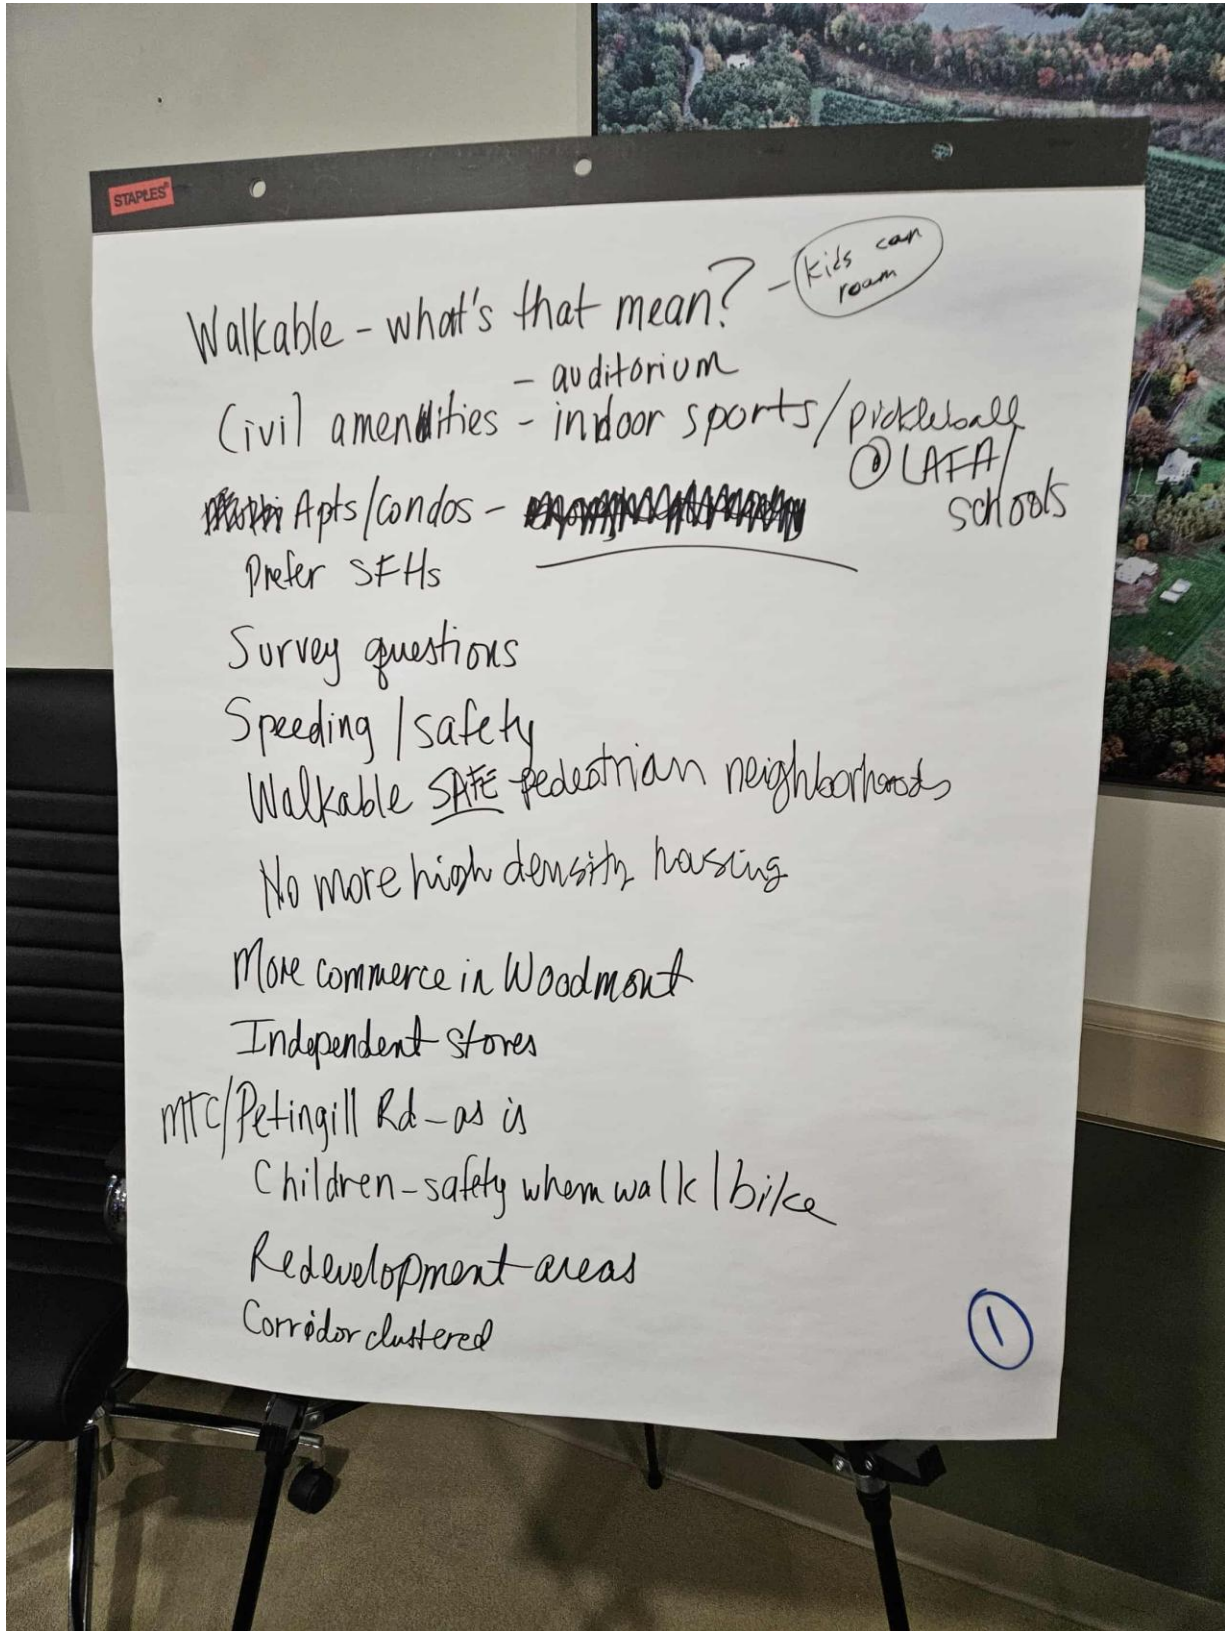 STAPLES®
Walkable - what's that mean? - kids can roam
- auditorium
Civil amenities - indoor sports/pickleball
@ LAFA/
schools
Apts/condos -
Prefer SFHs
Survey questions
Speeding / safety
Walkable SAFE pedestrian neighborhoods
No more high density housing
More commerce in Woodmont
Independent stores
MTC/Petingill Rd - as is
Children - safety when walk / bike
Redevelopment areas
Corridor clustered
1